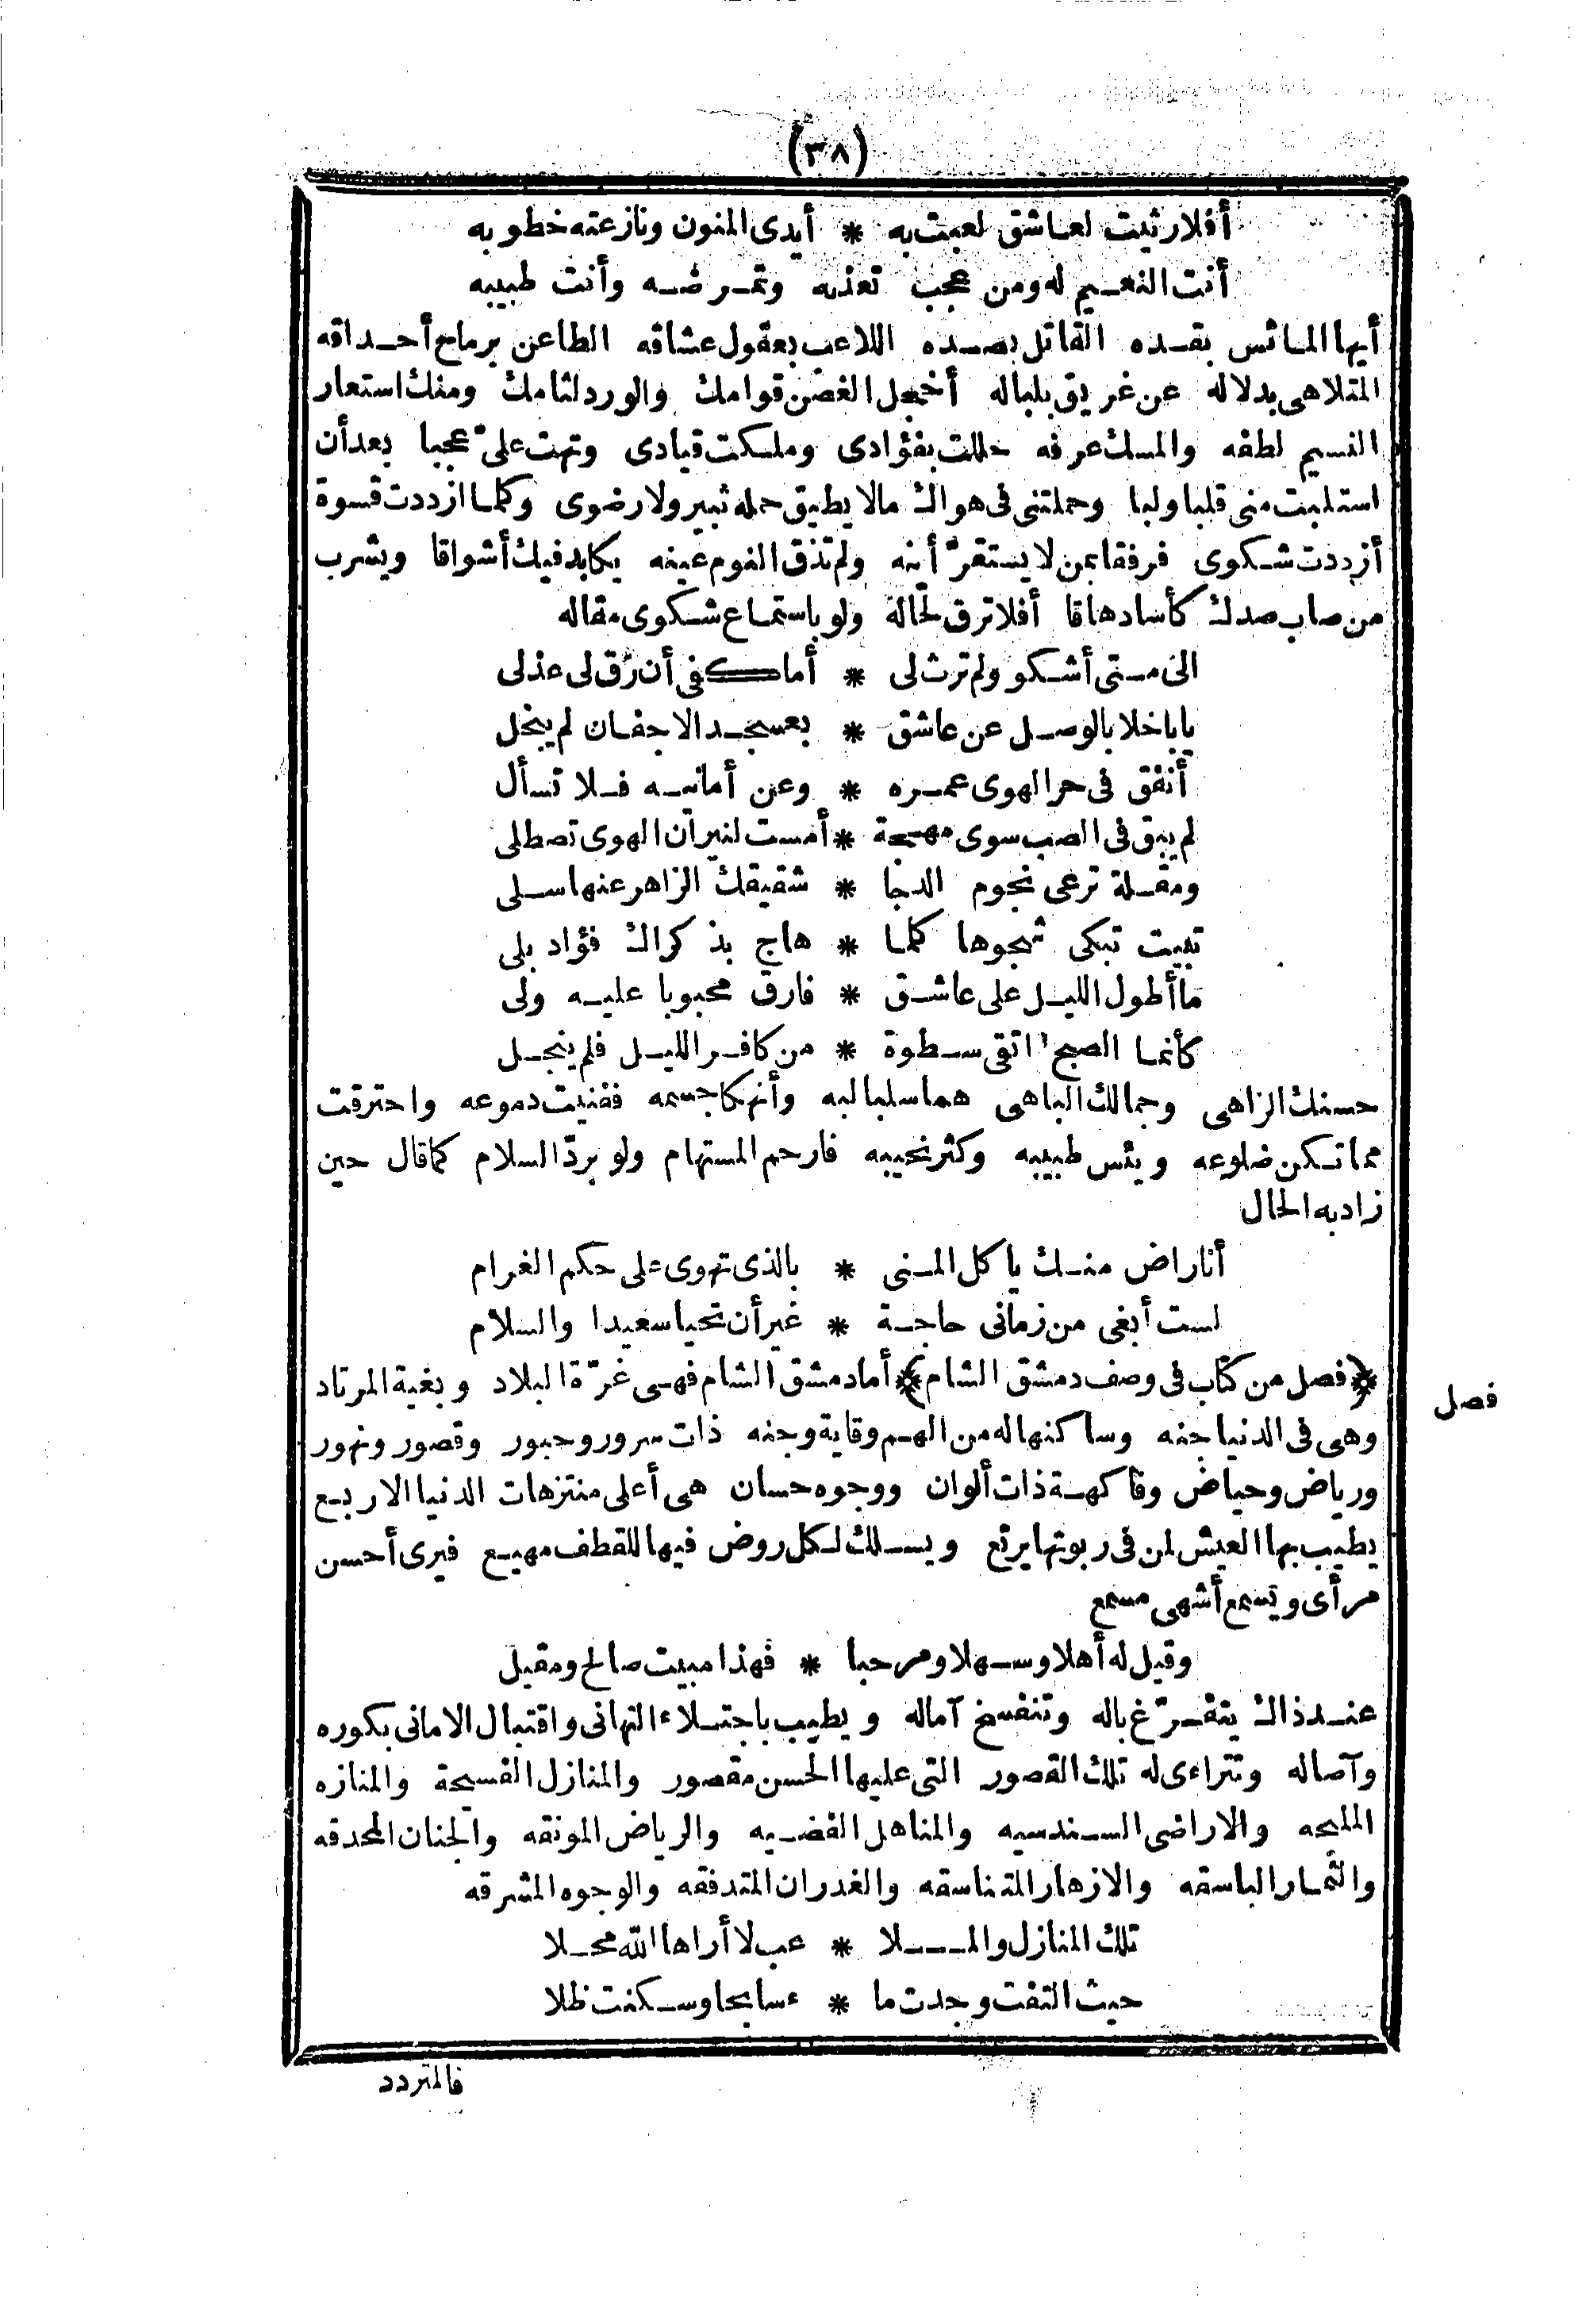 (٣٨)
أفلا رثيت لعاشق لعبت به * أيدى المنون ونازعته خطوبه
أنت النعيم له ومن عجب تعذبه وتمرضه وأنت طبيبه
أيها المائس بقده القاتل بصده اللاعب بعقول عشاقه الطاعن برماح أحداقه
المتلاهى بدلاله عن غريق بلباله أخجل الغصن قوامك والورد لثامك ومنك استعار
النسيم لطفه والمسك عرفه حللت بفؤادى وملكت قيادى وتهت علىّ عجبا بعد أن
استلبت منى قلبا ولبا وحملتنى فى هواك مالا يطيق حمله ثبير ولا رضوى وكلما ازددت قسوة
أزددت شكوى فرفقا بمن لا يستقرّ أينه ولم تذق النوم عينه يكابد فيك أشواقا ويشرب
من صاب صدك كأسا دهاقا أفلا ترق لحالة ولو باستماع شكوى مقاله
الى متى أشكو ولم ترث لى * أما كفى أن رق لى عذلى
يا باخلا بالوصل عن عاشق * بعسجد الاجفان لم يبخل
أنفق فى حر الهوى عمره * وعن أمانيه فلا تسأل
لم يبق فى الصب سوى مهجة * أمست لنيران الهوى تصطلى
ومقلة ترعى نجوم الدجا * شقيقك الزاهر عنها سلى
تبيت تبكى شجوها كلما * هاج بذكراك فؤاد بلى
ما أطول الليل على عاشق * فارق محبوبا عليه ولى
كأنما الصبح اتقى سطوة * من كافر الليل فلم ينجل
حسنك الزاهى وجمالك الباهى هما سلبا لبه وأنهكا جسمه ففنيت دموعه واحترقت
مما تكن ضلوعه ويئس طبيبه وكثر نحيبه فارحم المستهام ولو بردّ السلام كما قال حين
زاد به الحال
أنا راض منك يا كل المنى * بالذى تهوى على حكم الغرام
لست أبغى من زمانى حاجة * غير أن تحيا سعيدا والسلام
﴿فصل من كتاب فى وصف دمشق الشام﴾ أما دمشق الشام فهى غرّة البلاد وبغية المرتاد
فصل
وهى فى الدنيا جنه وساكنها له من الهم وقاية وجنه ذات سرور وحبور وقصور ونهور
ورياض وحياض وفاكهة ذات ألوان ووجوه حسان هى أعلى منتزهات الدنيا الاربع
يطيب بها العيش لمن فى ربوتها يرتع ويسلك لكل روض فيها للقطف مهيع فيرى أحسن
مرأى ويسمع أشهى مسمع
وقيل له أهلا وسهلا ومرحبا * فهذا مبيت صالح ومقيل
عند ذاك يتفرّغ باله وتنفسح آماله ويطيب باجتلاء التهانى واقتبال الامانى بكوره
وآصاله وتتراءى له تلك القصور التى عليها الحسن مقصور والمنازل الفسيحة والمنازه
المليحه والاراضى السندسيه والمناهل الفضيه والرياض المونقه والجنان المحدقه
والثمار الباسقه والازهار المتناسقه والغدران المتدفقه والوجوه المشرقه
تلك المنازل والملا * عب لا أراها الله محلا
حيث التفت وجدت ما * ء سابحا وسكنت ظلا
فالمتردد